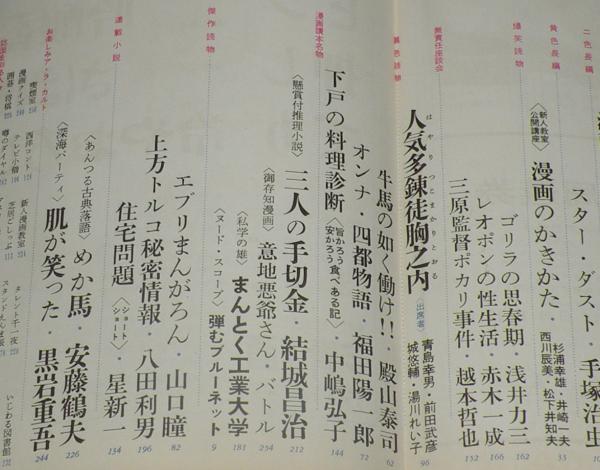 二色長編
スター・ダスト・手塚治虫
黄色長編
〈新人教室公開講座〉
漫画のかきかた・
杉浦幸雄・井崎一夫
西川辰美・松下井知夫
33
爆笑読物
ゴリラの思春期・浅井力三
162
レオポンの性生活・赤木一成
166
三原監督ポカリ事件・越本哲也
152
無責任座談会
人気多錬徒胸之内
はやりつとまかりとおる
〈出席者〉
青島幸男・前田武彦
城悠輔・湯川れい子
96
異色読物
牛馬の如く働け!!・殿山泰司
62
オンナ・四都物語・福田陽一郎
72
漫画読本名物
下戸の料理診断
〈旨かろう安かろう食べある記〉
・中嶋弘子
144
〈懸賞付推理小説〉
三人の手切金・結城昌治
212
〈御存知漫画〉
意地悪爺さん・バトル
254
〈私学の雄〉
まんとく工業大学
181
〈ヌード・スコープ〉
弾むブルーネット
9
傑作読物
エプリまんがろん・山口瞳
82
上方トルコ秘密情報・八田利男
196
住宅問題
〈ショートショート〉
星新一
134
連載小説
〈あんつる古典落語〉
めか馬・安藤鶴夫
226
〈深海パーティ〉
肌が笑った・黒岩重吾
244
お楽しみア・ラ・カルト
喫煙室
漫画クイズ
囲碁・将棋
西洋コント
テレビ小僧
噂のダイヤル
新人漫画教室
芝居ごしっぷ
タレント千一夜
いじわる図書館